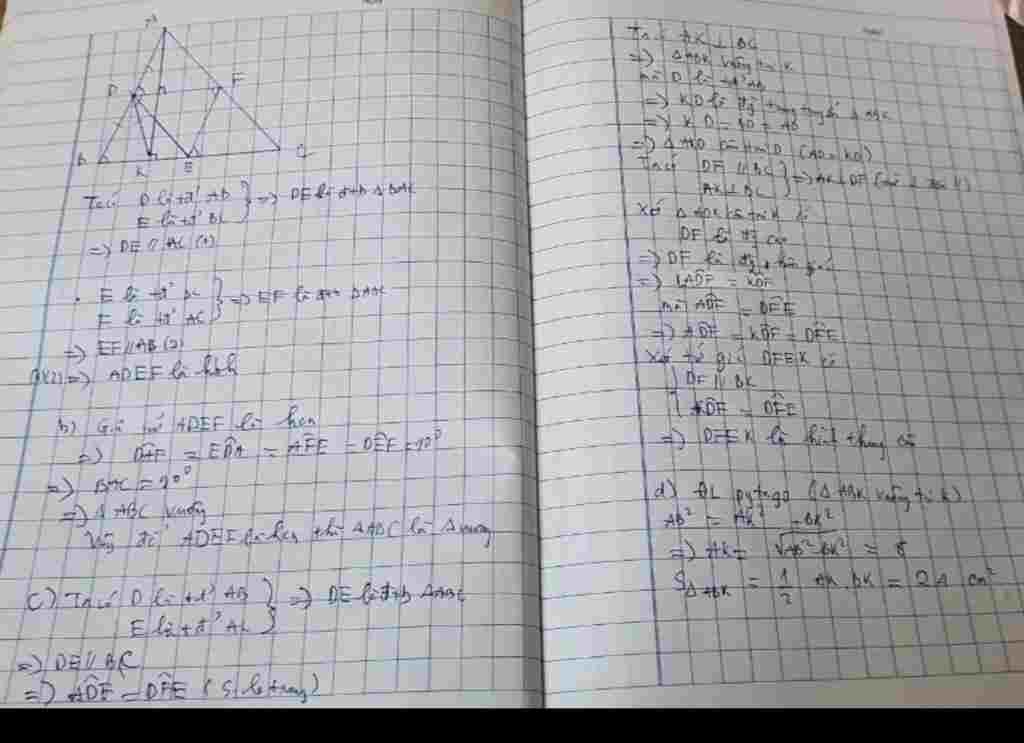 A
D
F
B
K
E
C
Ta có D là tđ AB
E là tđ BC
} => DE là đtb ΔBAC
=> DE // AC (1)
E là tđ BC
F là tđ AC
} => EF là đtb ΔABC
=> EF // AB (2)
=> ADEF là hbh
b) Giả sử ADEF là hcn
=> = EDA = AFE = DEF = 90°
=> BAC = 90°
=> Δ ABC vuông
Vậy để ADEF là hcn thì ΔABC là Δ vuông
c) Ta có D là tđ AB
E là tđ AC
} => DE là đtb ΔABC
=> DE // BC
=> ADF = DFE (sl trong)
Ta có AK ⊥ BC
=> Δ ABK vuông tại K
mà D là tđ AB
=> KD là đg trung tuyến Δ
=> KD = = AD
=> Δ AKD cân tại D (AD = KD)
Ta có DF // BC
AK ⊥ BC
} => AK ⊥ DF
Xét Δ ADK cân tại D có
DF là đg cao
=> DF là đg phân giác
=> ADF = KDF
mà ADF = DFE
=> ADF = KDF = DFE
Xét tứ giác DFEK có
DF // BK
KDF = DFE
=> DFEK là hình thang cân
d) ĐL pytago (Δ ABK vuông tại K)
AB² = AK² BK²
=> AK = √AB² - BK² =
S Δ ABK = 1/2 AK . BK = 24 cm²